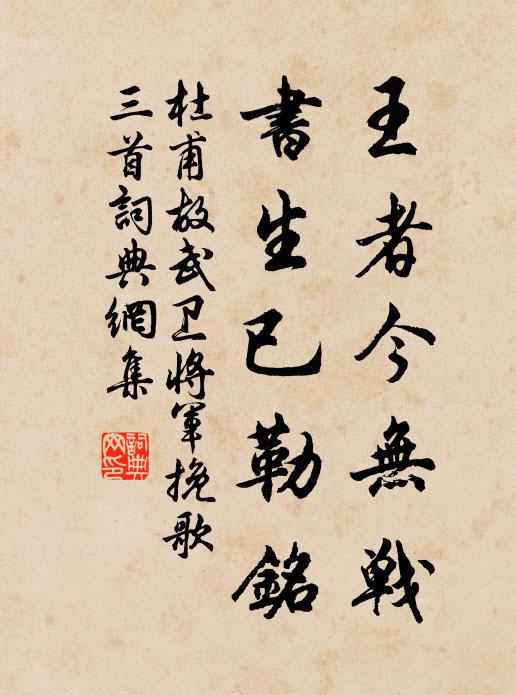 王者今無戦
書生已勒銘
杜甫故武卫將軍挽歌
三首詞典網集
詞典
网印